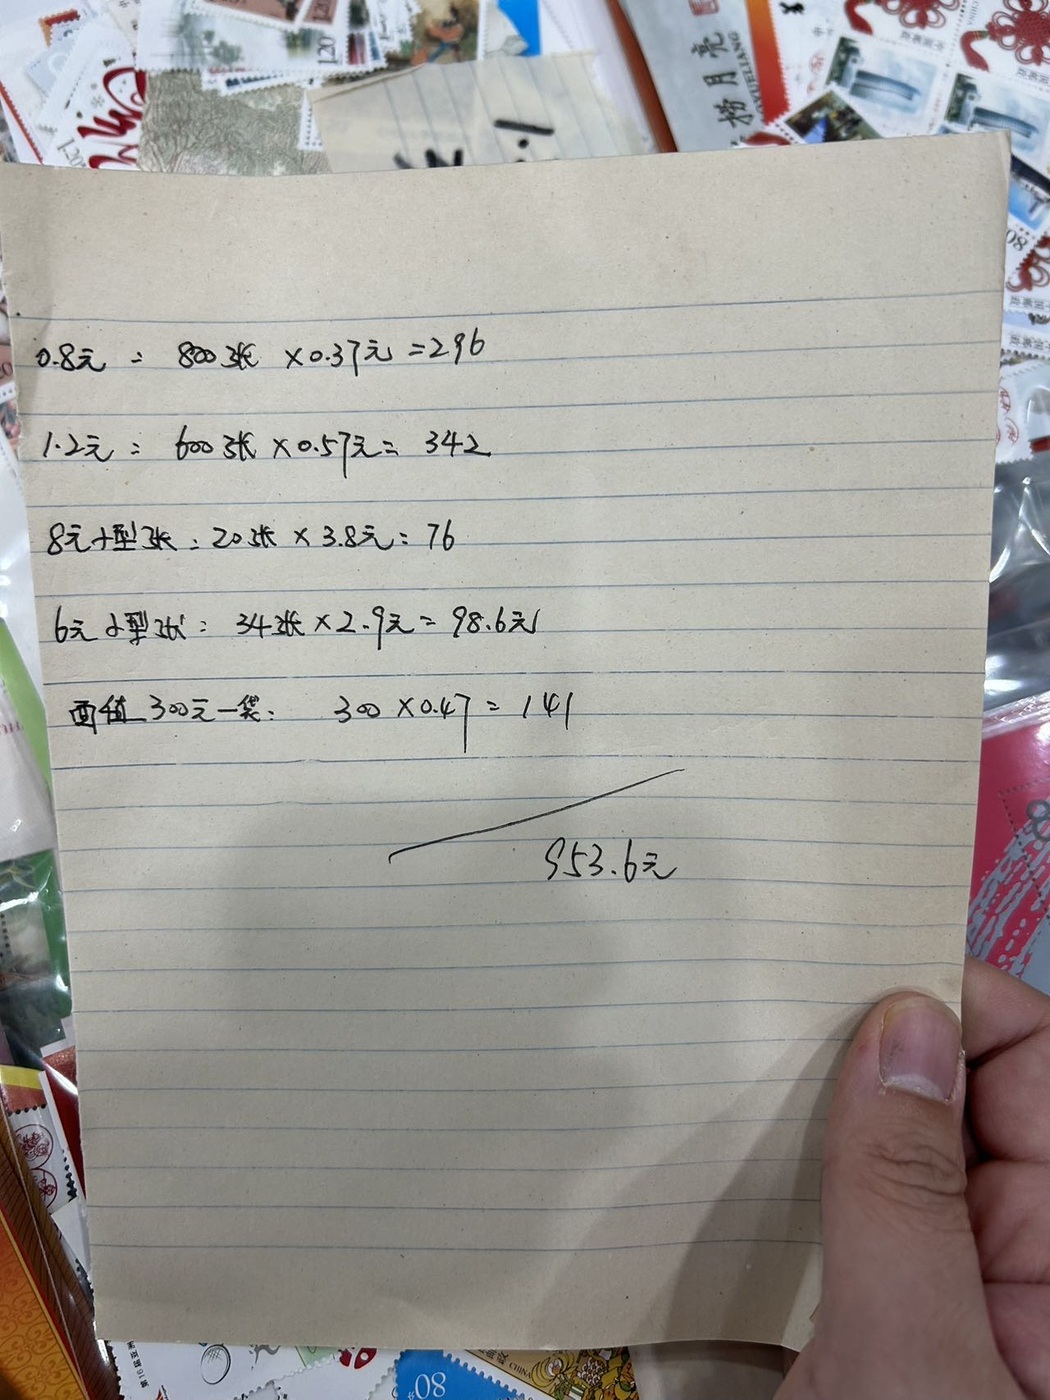 捞月亮
LAOYUELIANG
120
1.20
80
0.8元： 800张 ×0.37元 =296
1.2元： 600张 ×0.57元= 342
8元小型张：20张 × 3.8元= 76
6元小型张： 34张 × 2.9元= 98.6元
面值300元一袋： 300 ×0.47 = 141
953.6元
80
CHINA